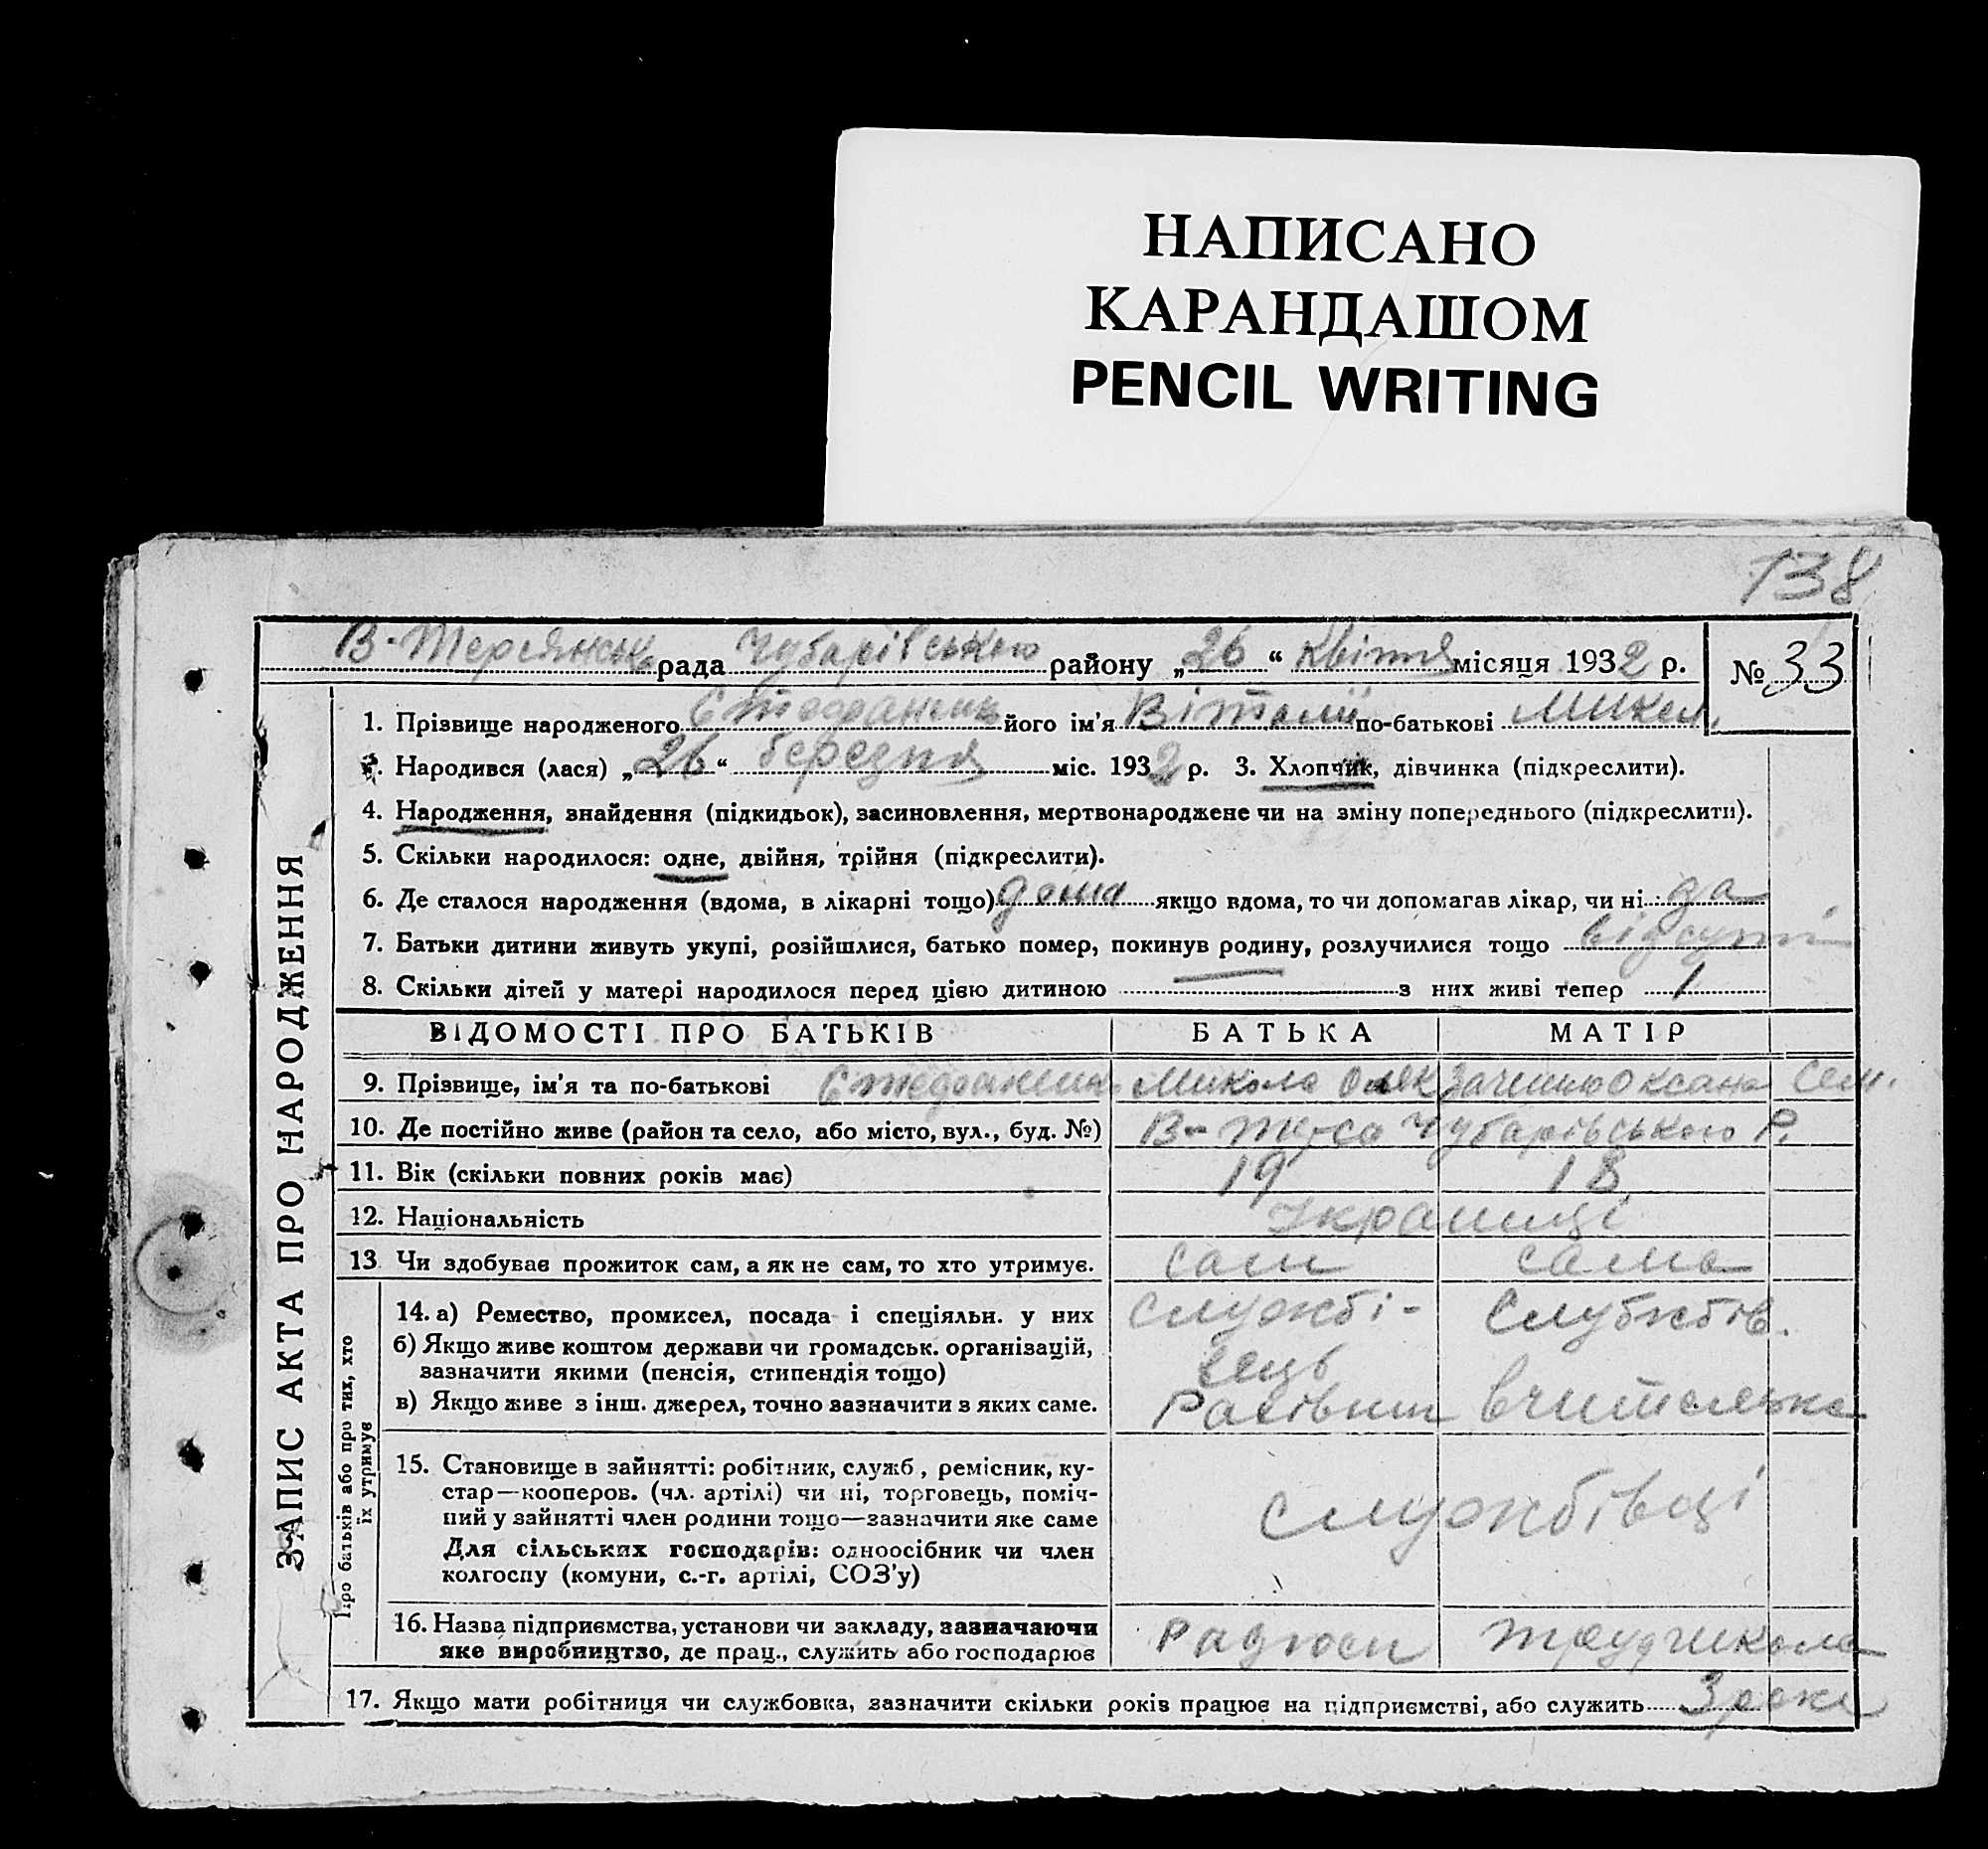 НАПИСАНО
КАРАНДАШОМ
PENCIL WRITING
138
В-Терсянськ рада Чубарівського району „26“ Квітня місяця 1932 р. № 33
ЗАПИС АКТА ПРО НАРОДЖЕННЯ
1. Прізвище народженого його ім'я Віталій по-батькові Микол.
2. Народився (лася) „26“ березня міс. 1932 р. 3. Хлопчик, дівчинка (підкреслити).
4. Народження, знайдення (підкидьок), засиновлення, мертвонароджене чи на зміну попереднього (підкреслити).
5. Скільки народилося: одне, двійня, трійня (підкреслити).
6. Де сталося народження (вдома, в лікарні тощо) дома якщо вдома, то чи допомагав лікар, чи ні да
7. Батьки дитини живуть укупі, розійшлися, батько помер, покинув родину, розлучилися тощо відсутні
8. Скільки дітей у матері народилося перед цією дитиною — з них живі тепер 1
ВІДОМОСТІ ПРО БАТЬКІВ БАТЬКА МАТІР
9. Прізвище, ім'я та по-батькові Микола Олек Оксана Сем.
10. Де постійно живе (район та село, або місто, вул., буд. №) В-Терса Чубарівського Р.
11. Вік (скільки повних років має) 19 18
12. Національність Українці
13 Чи здобуває прожиток сам, а як не сам, то хто утримує. сам сама
Про батьків або про тих, хто їх утримує
14. а) Ремество, промисел, посада і спеціяльн. у них службі- Службів.
б) Якщо живе коштом держави чи громадськ. організацій,
зазначити якими (пенсія, стипендія тощо) вець
в) Якщо живе з інш. джерел, точно зазначити з яких саме. вчителька
15. Становище в зайнятті: робітник, служб, ремісник, ку-
стар—кооперов. (чл. артілі) чи ні, торговець, поміч-
ний у зайнятті член родини тощо—зазначити яке саме службівці
Для сільських господарів: одноосібник чи член
колгоспу (комуни, с.-г. артілі, СОЗ'у)
16. Назва підприємства, установи чи закладу, зазначаючи
яке виробництво, де прац., служить або господарює Радгосп трудшкола
17. Якщо мати робітниця чи службовка, зазначити скільки років працює на підприємстві, або служить 3 роки